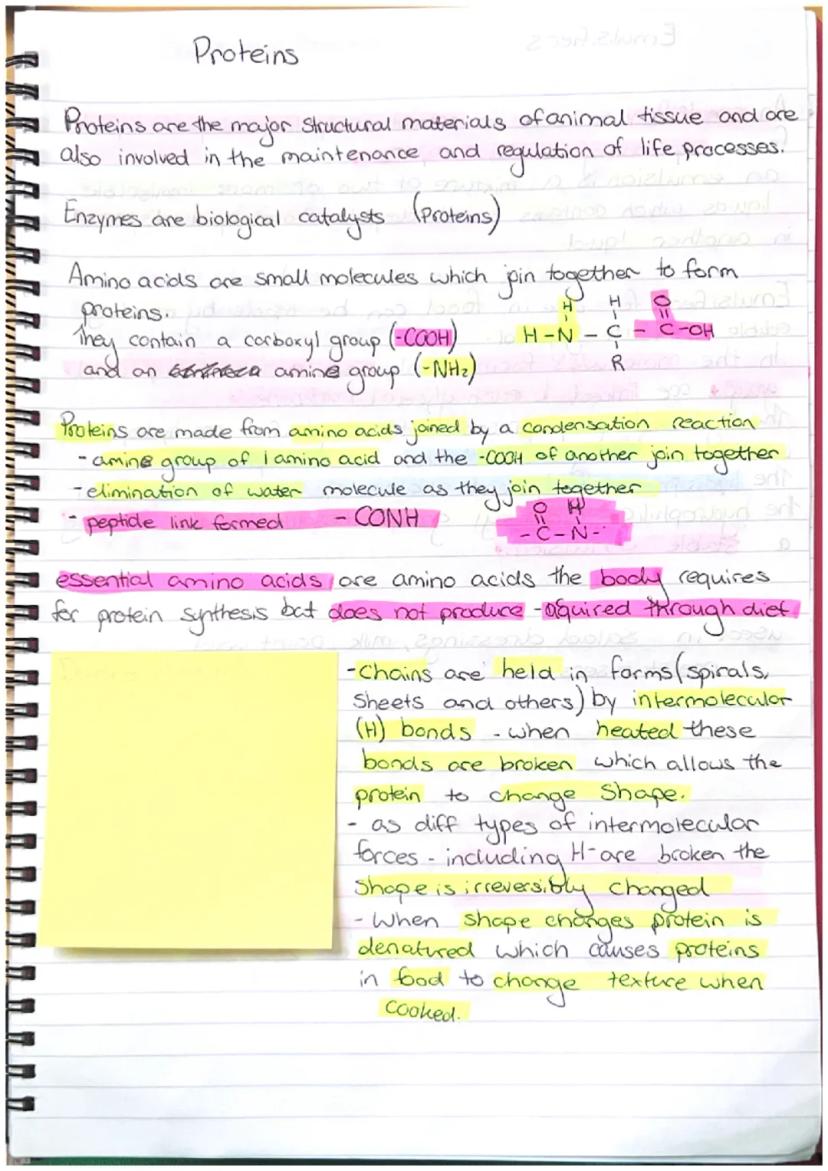 Proteins
Proteins are the major structural materials of animal tissue and are
also involved in the maintenance and regulation of life processes.
Enzymes are biological catalysts (Proteins)
Amino acids are small molecules which join together to form
proteins.
They contain a carboxyl group (-COOH)
and an amine group (-NH₂)
H O
H
H - N - C - C - OH
R
Proteins are made from amino acids joined by a condensation reaction
- amine group of 1 amino acid and the -COOH of another join together
- elimination of water molecule as they join together
- peptide link formed - CONH
O H
- C - N -
essential amino acids are amino acids the body requires
for protein synthesis but does not produce - aquired through diet
- Chains are held in forms (spirals,
sheets and others) by intermolecular
(H) bonds - when heated these
bonds are broken which allows the
protein to change shape.
- as diff types of intermolecular
forces - including H - are broken the
shape is irreversibly changed
- When shape changes protein is
denatured which causes proteins
in food to change texture when
cooked.